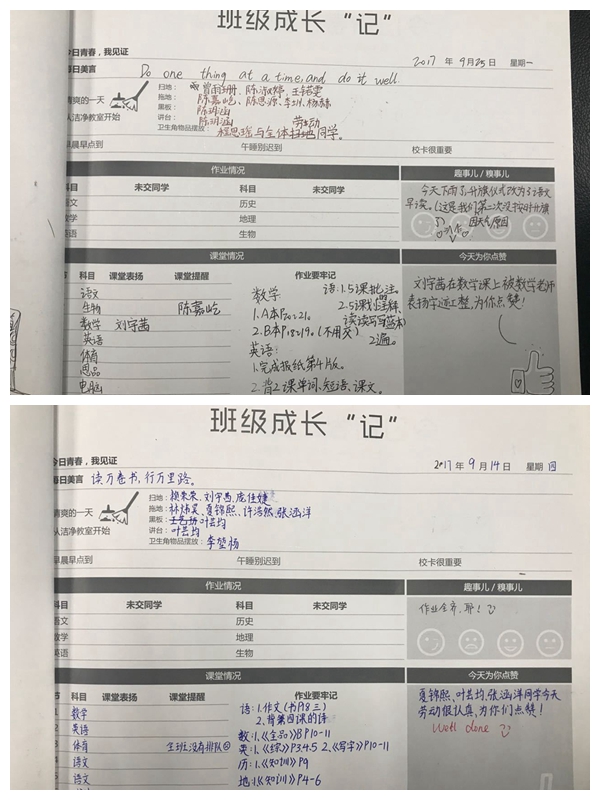 班级成长“记”
今日青春，我见证
2017 年 9 月 25 日 星期一
每日美言 Do one thing at a time, and do it well.
清爽的一天
从洁净教室开始
扫地：
拖地：陈嘉屹、陈思源、
黑板：陈玥涵
讲台：陈玥涵 劳动
卫生角物品摆放：程思瑶与全体扫地同学。
早晨早点到 午睡别迟到 校卡很重要
作业情况 趣事儿 / 糗事儿
科目 未交同学 科目 未交同学
语文 历史
数学 地理
英语 生物
今天下雨了，升旗仪式改为了语文
早读。(这是我们第二次没按时升旗
因天气原因
课堂情况 今天为你点赞
节 科目 课堂表扬 课堂提醒 作业要牢记
语文
生物 陈嘉屹
数学 刘宇茜
英语
体育
思品
电脑
数学
1. A本P20~21。
2. B本P18~19。(不用交)
英语：
1.完成报纸第4版。
2.背2课单词、短语、课文。
语：1.5课批注。
2.5课划注释、
读读写写(蓝本)
2遍。
刘宇茜在数学课上被数学老师
表扬字迹工整，为你点赞！
班级成长“记”
今日青春，我见证
2017 年 9 月 14 日 星期 四
每日美言 读万卷书，行万里路。
清爽的一天
从洁净教室开始
扫地：赖荣荣、刘宇茜、庞佳婕
拖地：林炜昊、夏锦熙、许浩然、张涵洋
黑板：叶芸均
讲台：叶芸均
卫生角物品摆放：李堃杨
早晨早点到 午睡别迟到 校卡很重要
作业情况 趣事儿 / 糗事儿
科目 未交同学 科目 未交同学
语文 历史
数学 地理
英语 生物
作业全齐，耶！
课堂情况 今天为你点赞
节 科目 课堂表扬 课堂提醒 作业要牢记
1 数学
2 英语
3 体育 全班没有排队
4 语文
5 语文
语：1.作文(书P18 三)
2.背第四课的诗
数：1.《全品》BP10-11
英：1.《综》P3.4.5 2.《写字》P10-11
历：1.《知训》P9
地：1.《知训》P4-6
夏锦熙、叶芸均、张涵洋同学今天
劳动很认真，为你们点赞！
Well done